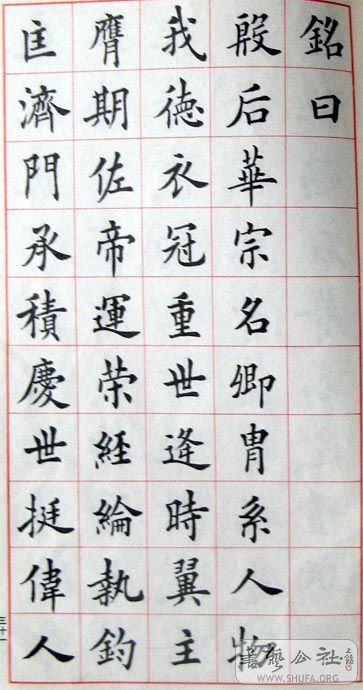 銘曰
殷后華宗名卿胄系人物
我徳衣冠重世逢時翼主
膺期佐帝運荣経綸執鈞
匡濟門承積慶世挺偉人
書藝公社
WWW.SHUFA.ORG